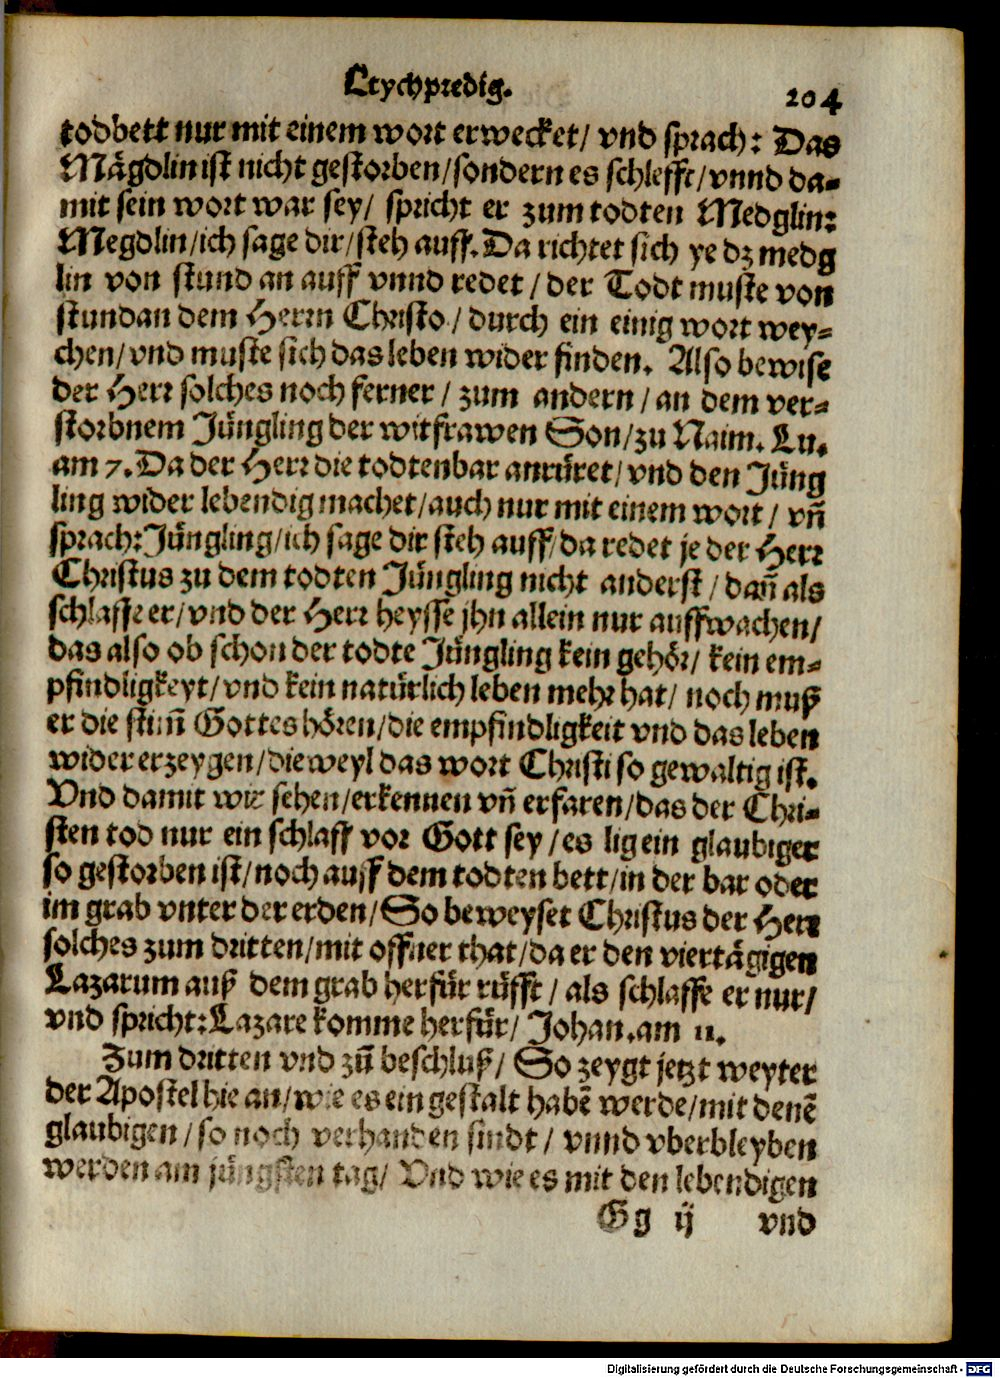 Leychpredig.
204
todbett nur mit einem wort erwecket/ vnd sprach: Das
Mägdlin ist nicht gestorben/sondern es schlefft/vnnd da-
mit sein wort war sey/ spricht er zum todten Medglin:
Megdlin/ich sage dir/steh auff. Da richtet sich ye dz medg
lin von stund an auff vnnd redet/ der Todt muste von
stundan dem Herrn Christo/ durch ein einig wort wey-
chen/vnd muste sich das leben wider finden. Also bewise
der Herr solches noch ferner/ zum andern/ an dem ver-
storbnem Jüngling der witfrawen Son/zu Naim. Lu.
am 7. Da der Herr die todtenbar anrüret/vnd den Jüng
ling wider lebendig machet/auch nur mit einem wort/ vñ
sprach:Jüngling/ich sage dir steh auff/da redet je der Herr
Christus zu dem todten Jüngling nicht anderst/ dañ als
schlaffe er/vnd der Herr heysse jhn allein nur auffwachen/
das also ob schon der todte Jüngling kein gehör/ kein em-
pfindligkeyt/vnd kein natürlich leben mehr hat/ noch muß
er die stim̃ Gottes hören/die empfindligkeit vnd das leben
wider erzeygen/dieweyl das wort Christi so gewaltig ist.
Vnd damit wir sehen/erkennen vñ erfaren/das der Chri-
sten tod nur ein schlaff vor Gott sey/es lig ein glaubiger
so gestorben ist/noch auff dem todten bett/in der bar oder
im grab vnter der erden/So beweyset Christus der Herr
solches zum dritten/mit offner that/da er den viertägigen
Lazarum auß dem grab herfür rüfft/ als schlaffe er nur/
vnd spricht:Lazare komme herfür/ Johan.am 11.
Zum dritten vnd zũ beschluß/ So zeygt jetzt weyter
der Apostel hie an/wie es ein gestalt habẽ werde/mit denẽ
glaubigen/so noch verhanden sindt/ vnnd vberbleyben
werden am jüngsten tag/ Vnd wie es mit den lebendigen
Gg ij
vnd
Digitalisierung gefördert durch die Deutsche Forschungsgemeinschaft - DFG